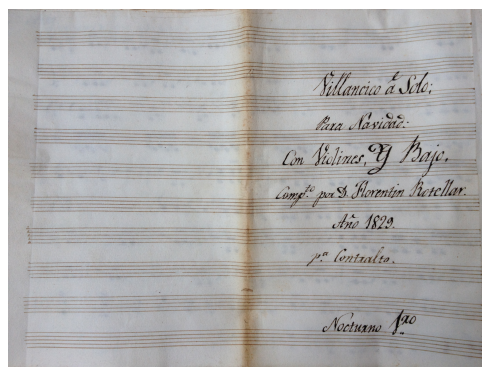 Villancico á Solo;
Para Navidad:
Con Violines, Y Bajo.
Comp.to por D. Florentin Rotellar.
Año 1829.
p.a Contralto.
Nocturno 1ro